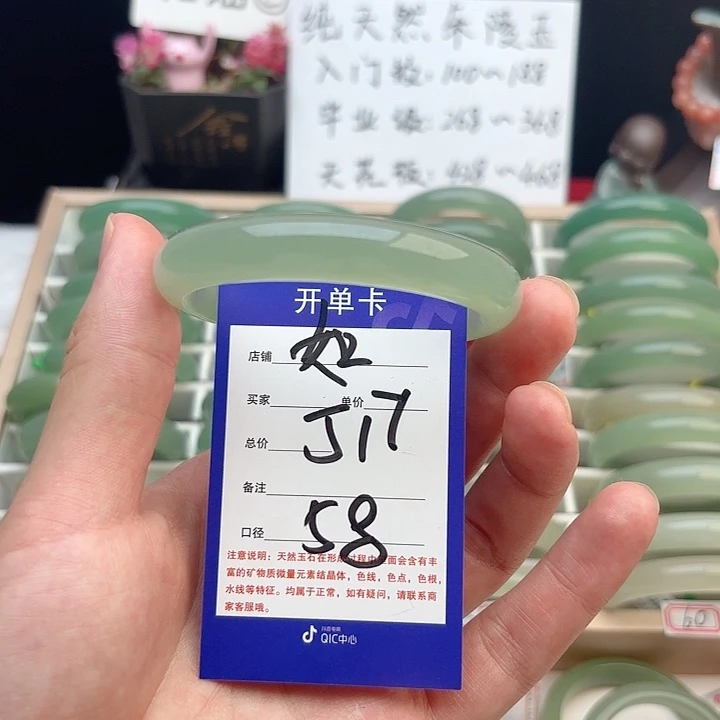 纯天然朱陵玉
入门级:100~188
毕业级:268~368
天花级:428~468
开单卡
店铺
买家 单价
J17
总价
备注
58
口径
注意说明:天然玉石在形成过程中里面会含有丰
富的矿物质微量元素结晶体,色线,色点,色根,
水线等特征。均属于正常,如有疑问,请联系商
家客服哦。
抖音电商
QIC中心
60